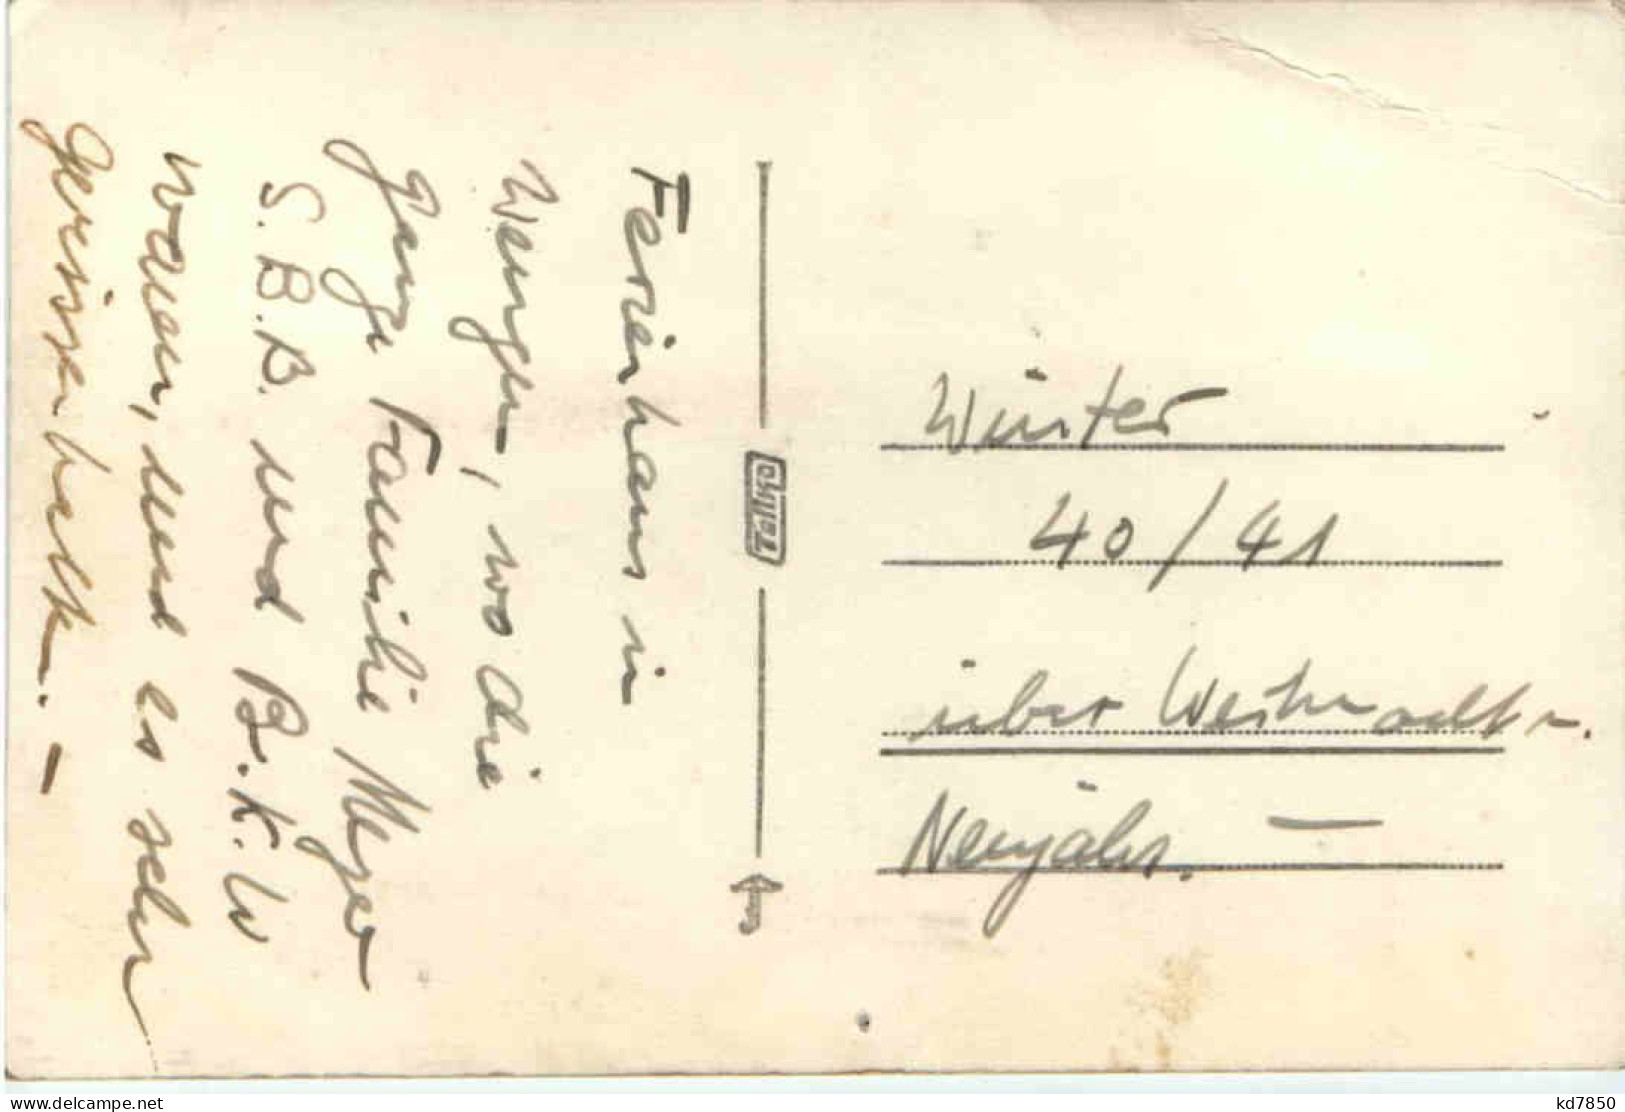 Ferienhaus in
Wengen, wo die
ganze Familie Meyer
S.B.B. und B.K.W
waren, und es sehr
genossen hatten. –
Tellko
Winter
40/41
über Weihnacht u.
Neujahr. –
delcampe.net
kd7850